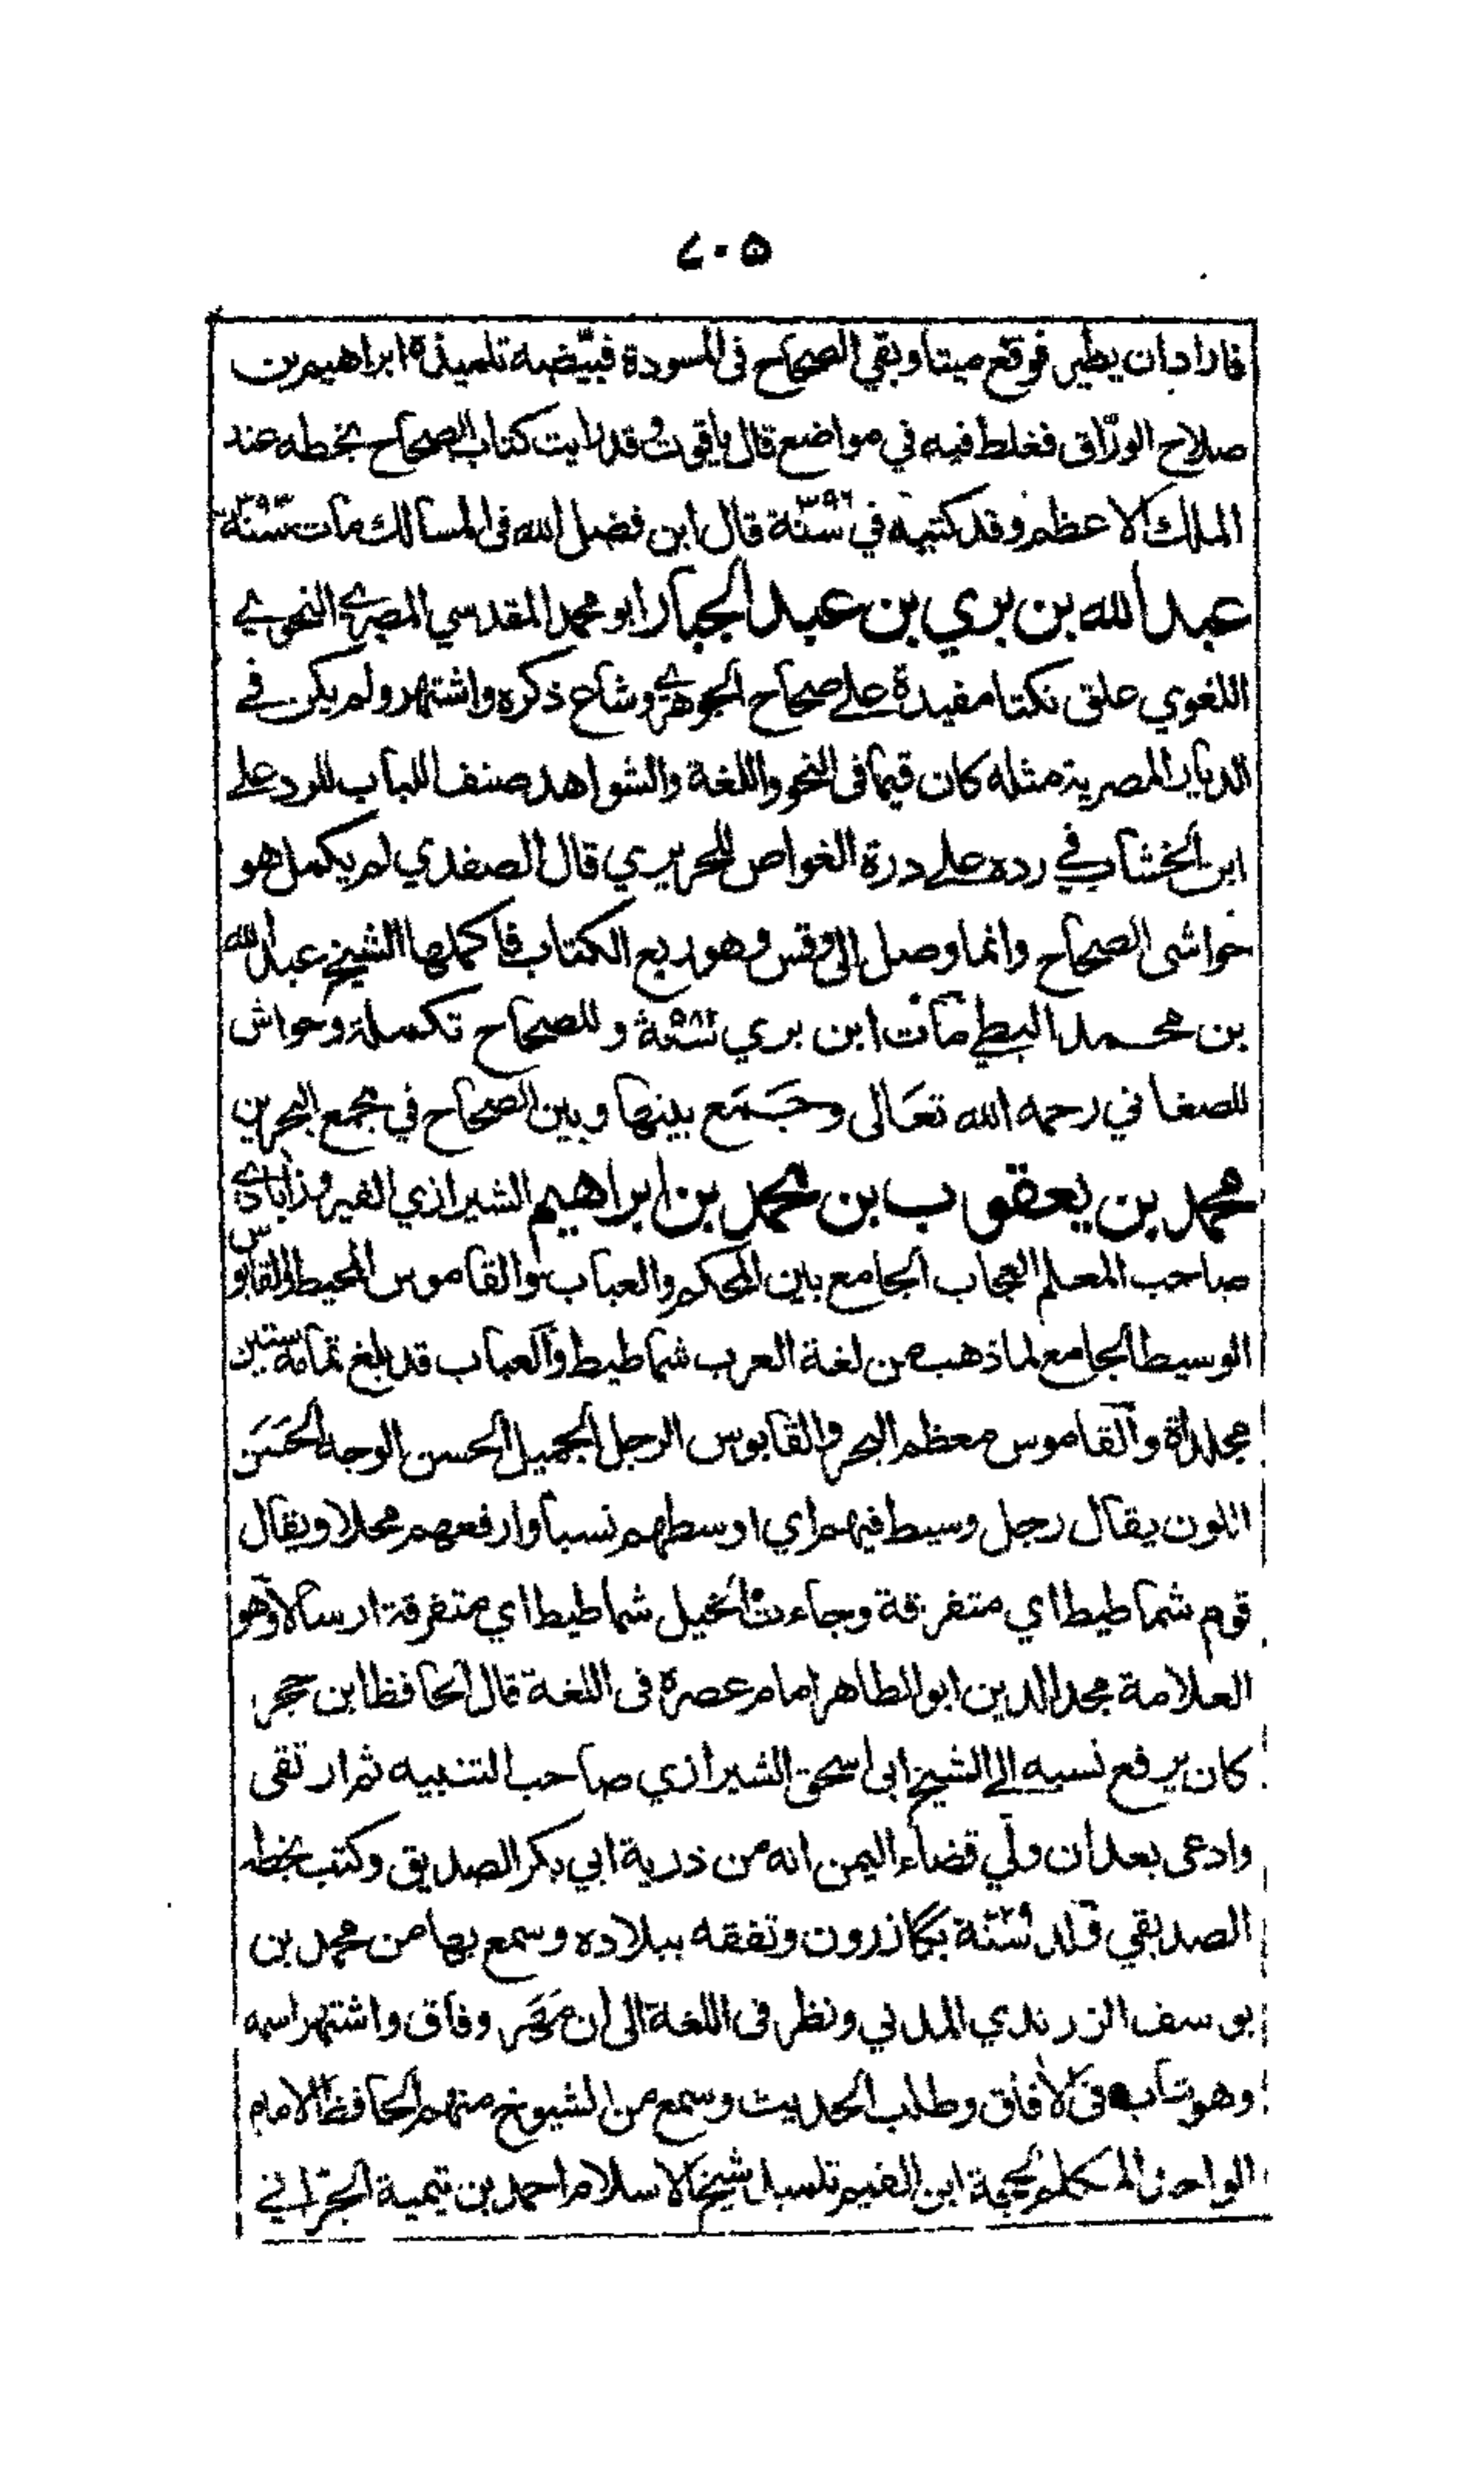 ٧٠٥
فاراد ان يطير فوقع ميتا وبقي الصحاح فى المسودة فبيّضه تلميذه ابراهيم بن
صلاح الورّاق فغلط فيه في مواضع قال ياقوت وقد رايت كتاب الصحاح بخطه عند
الملك الاعظم وقد كتبه في سنة ٣٩٦ قال ابن فضل الله فى المسالك مات سنة ٣٩٣
عبد الله بن بري بن عبد الجبار ابو محمد المقدسي المصري النحوي
اللغوي علق نكتا مفيدة على صحاح الجوهري وشاع ذكره واشتهر ولم يكن في
الديار المصرية مثله كان قيما فى النحو واللغة والشواهد صنف اللباب للرد على
ابن الخشاب في رده على درة الغواص للحريري قال الصفدي لم يكمل هو
حواشى الصحاح وانما وصل الى وقس وهو ربع الكتاب فاكملها الشيخ عبد الله
بن محمد البسطي مات ابن بري سنة ٥٨٢ و للصحاح تكملة وحواش
للصغاني رحمه الله تعَالى وجَمَع بينها وبين الصحاح في مجمع البحرين
محمد بن يعقوب بن محمد بن ابراهيم الشيرازي الفيروزآبادي
صاحب المعلم العجاب الجامع بين المحكم والعباب والقاموس المحيط والقابوس
الوسيط الجامع لما ذهب من لغة العرب شماطيط والعباب قد بلغ تمامه ستين
مجلداة والقاموس معظم البحر والقابوس الرجل الجميل الحسن الوجه الحَسَن
اللون يقال رجل وسيط فيهم اي اوسطهم نسبا وارفعهم محلا ويقال
قوم شماطيط اي متفرقة وجاءت الخيل شماطيط اي متفرقة ارسالا وهو
العلامة مجد الدين ابو الطاهر امام عصره فى اللغة قال الحافظ ابن حجر
كان يرفع نسبه الى الشيخ ابى اسحق الشيرازي صاحب التنبيه ثم ارتقى
وادعى بعد ان ولي قضاء اليمن انه من ذرية ابي بكر الصديق وكتب بخطه
الصديقي ولد سنة ٧٢٩ بكازرون وتفقه ببلاده وسمع بها من محمد بن
يوسف الزرندي المدني ونظر فى اللغة الى ان مَهَر وفاق واشتهر اسمه
وهو شاب فى الآفاق وطلب الحديث وسمع من الشيوخ منهم الحافظ الامام
الواحد المتكلم الحجة ابن القيم تلميذ شيخ الاسلام احمد بن تيمية الحرّاني